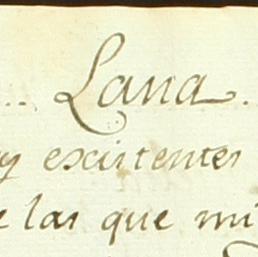 Lana.
y existentes
e las que mi